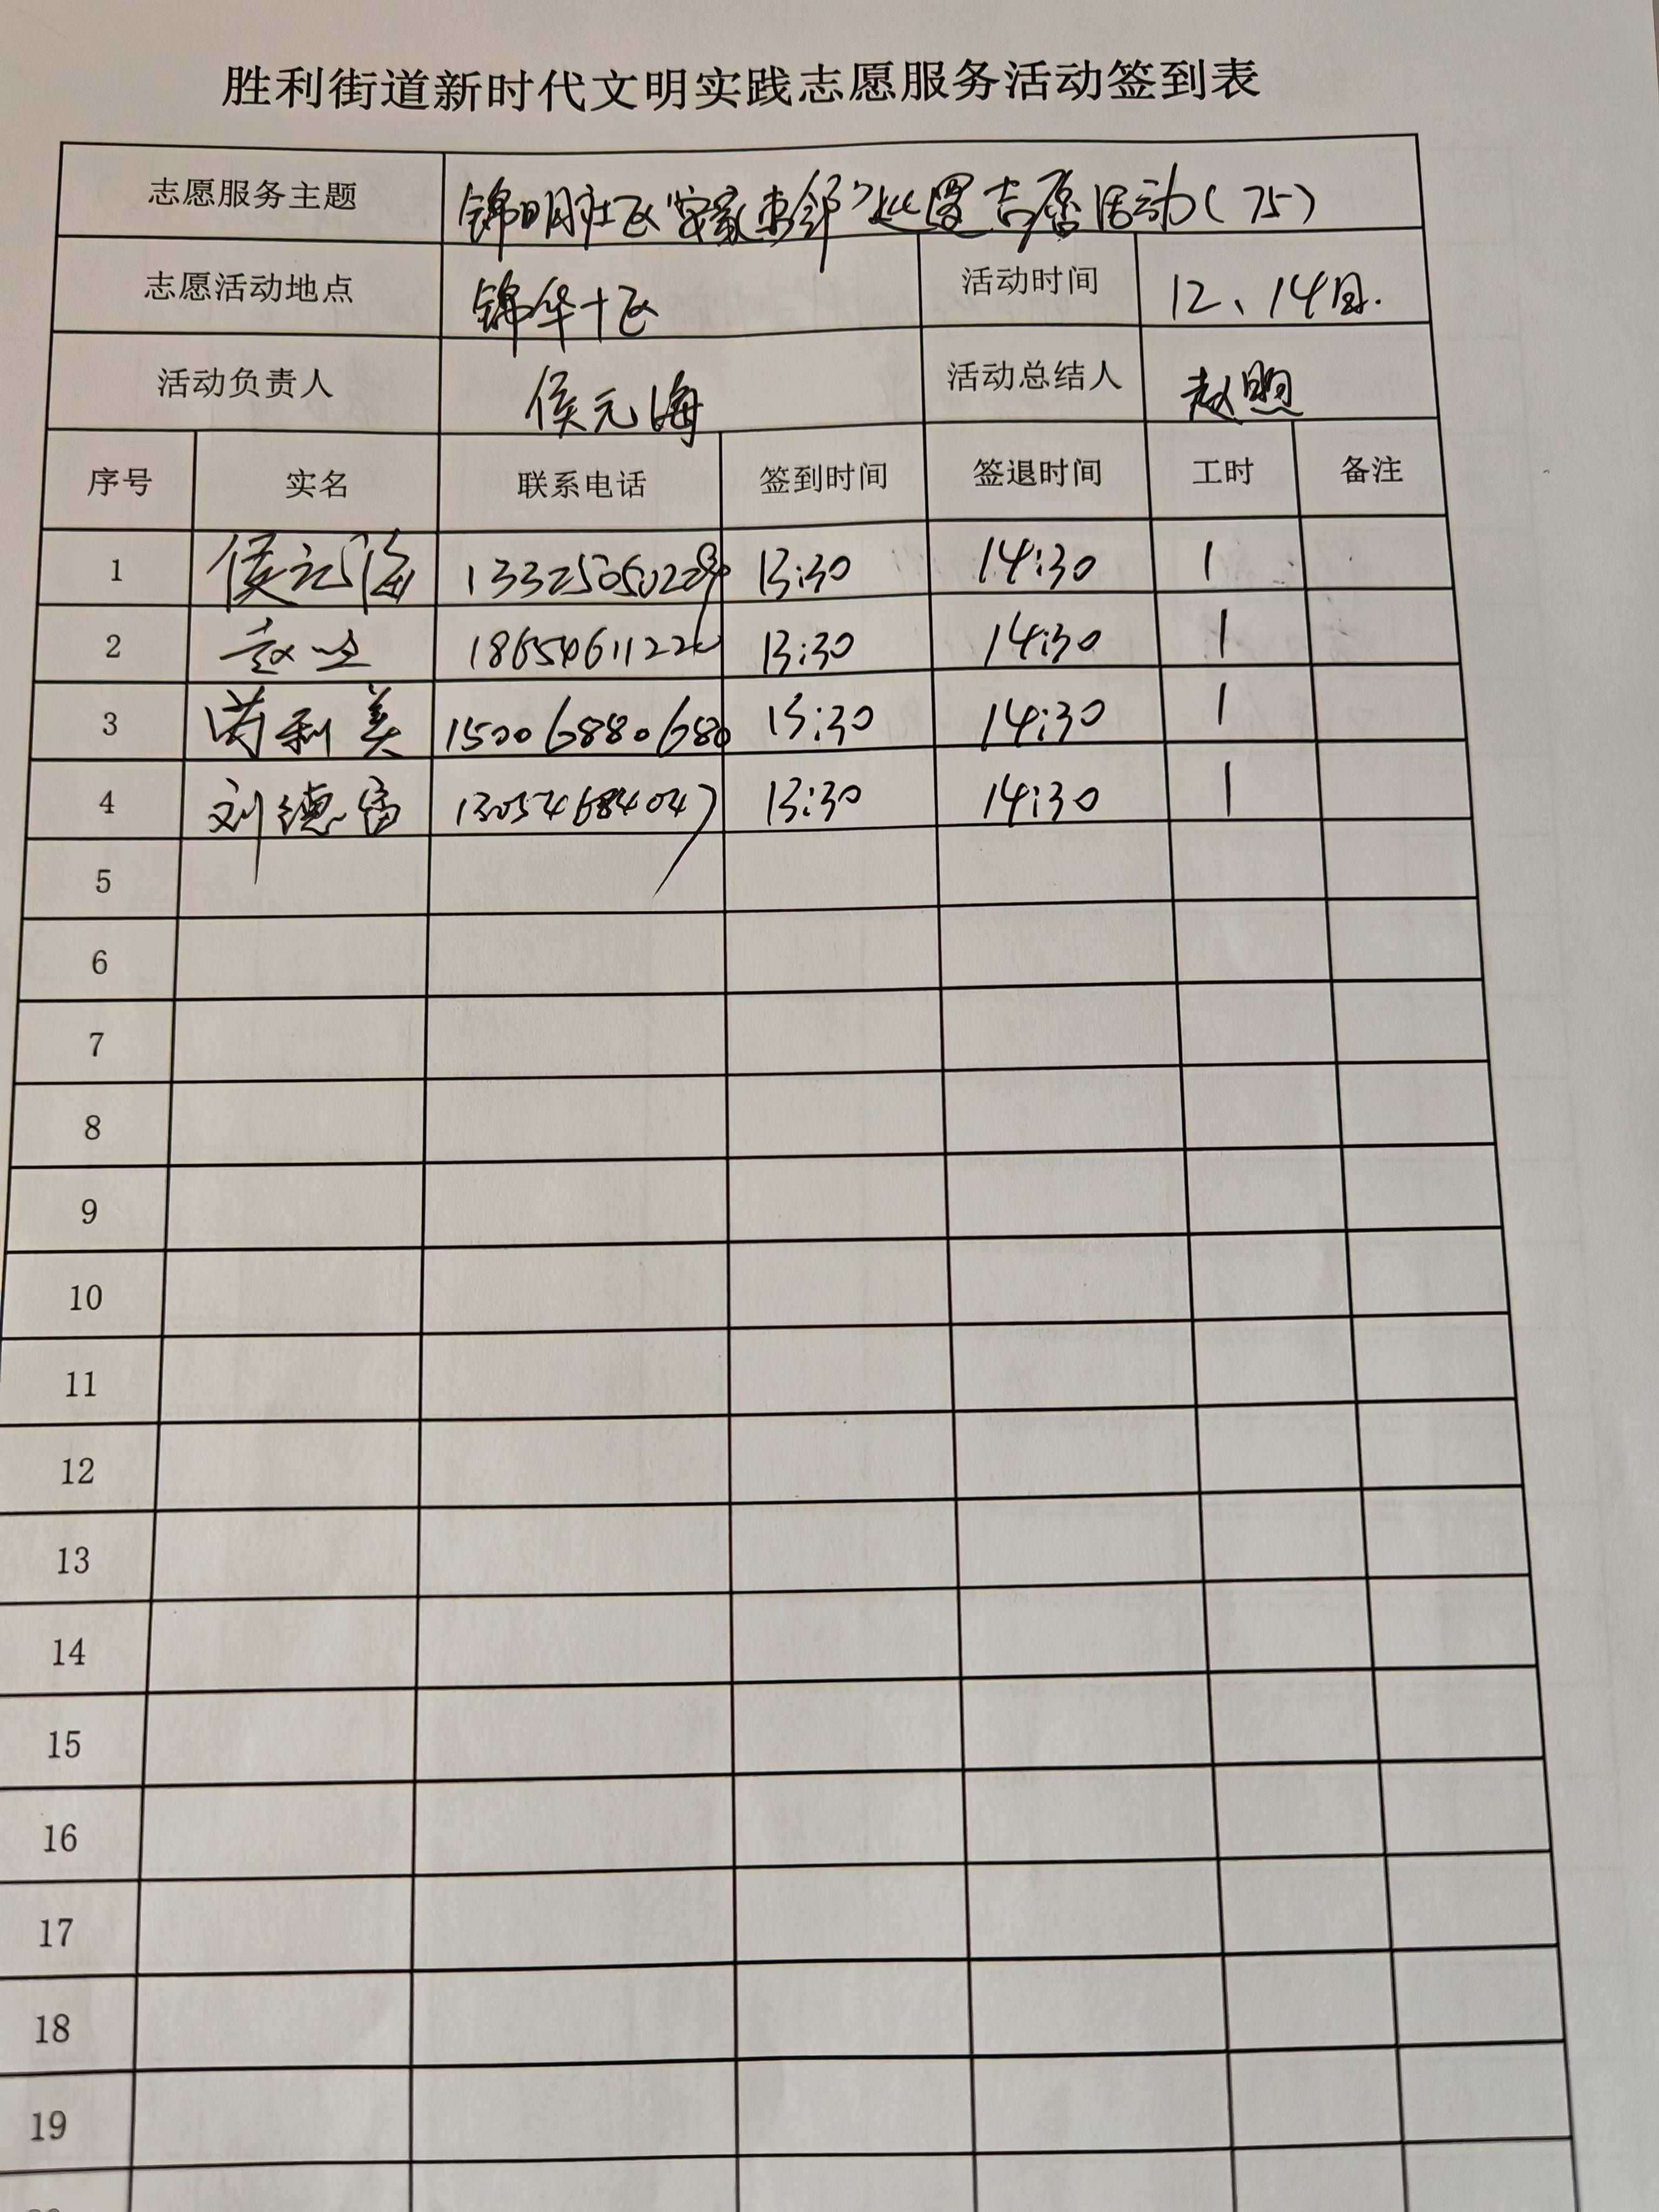 胜利街道新时代文明实践志愿服务活动签到表
志愿服务主题 锦明社区 活动(75)
志愿活动地点 锦华十区 活动时间 12、14日.
活动负责人 侯元海 活动总结人 赵
序号 实名 联系电话 签到时间 签退时间 工时 备注
1 侯元海 13:30 14:30 1
2 赵 13:30 14:30 1
3 利美 15006880680 13:30 14:30 1
4 刘德 13054684047 13:30 14:30 1
5
6
7
8
9
10
11
12
13
14
15
16
17
18
19